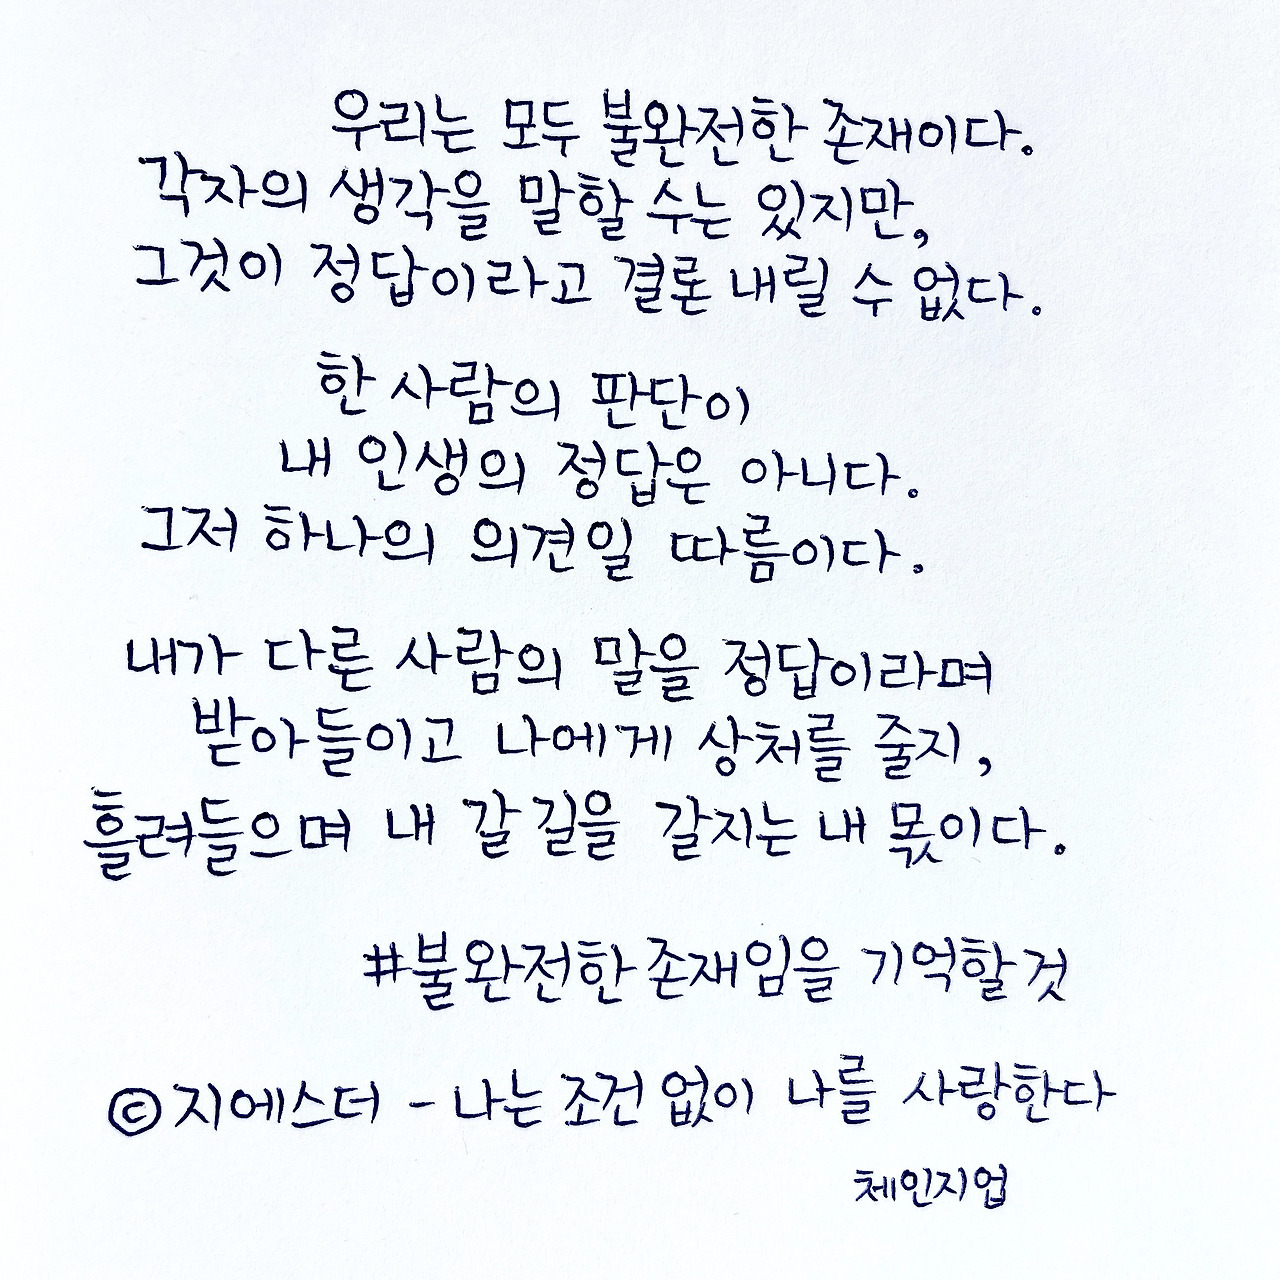 우리는 모두 불완전한 존재이다.
각자의 생각을 말할 수는 있지만,
그것이 정답이라고 결론 내릴 수 없다.
한 사람의 판단이
내 인생의 정답은 아니다.
그저 하나의 의견일 따름이다.
내가 다른 사람의 말을 정답이라며
받아들이고 나에게 상처를 줄지,
흘려들으며 내 갈 길을 갈지는 내 몫이다.
#불완전한존재임을 기억할것
©지에스더 - 나는 조건 없이 나를 사랑한다
체인지업